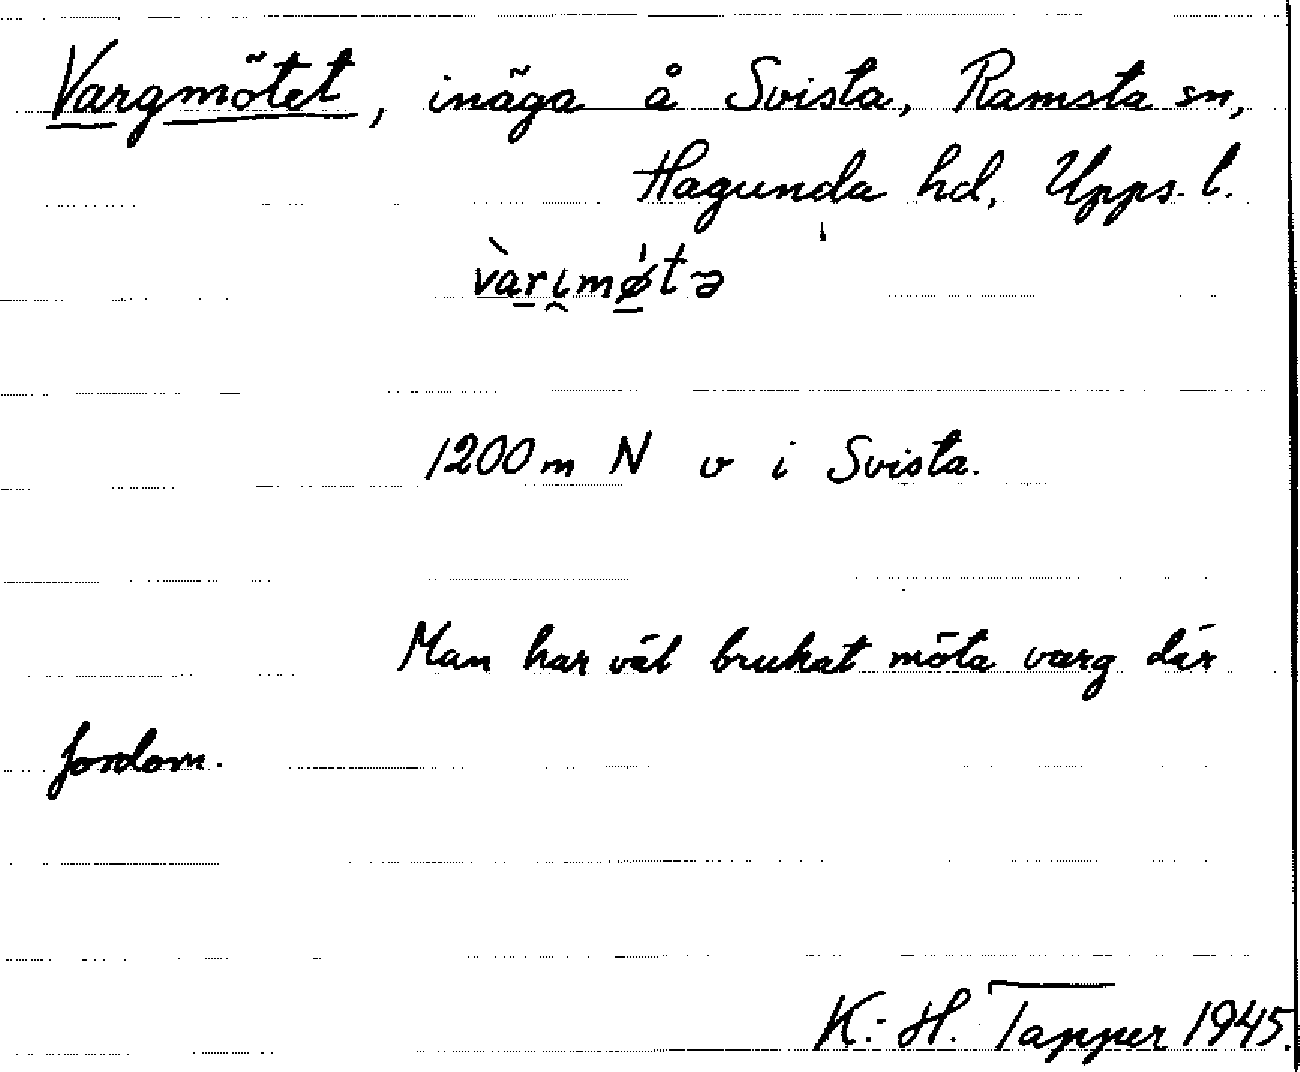 Vargmötet, inäga å Svista, Ramsta sn,
Hagunda hd, Upps. l.
vàri̯mø̀tə
1200 m N v i Svista.
Man har väl brukat möta varg där
fordom.
K.-H. Tapper 1945.